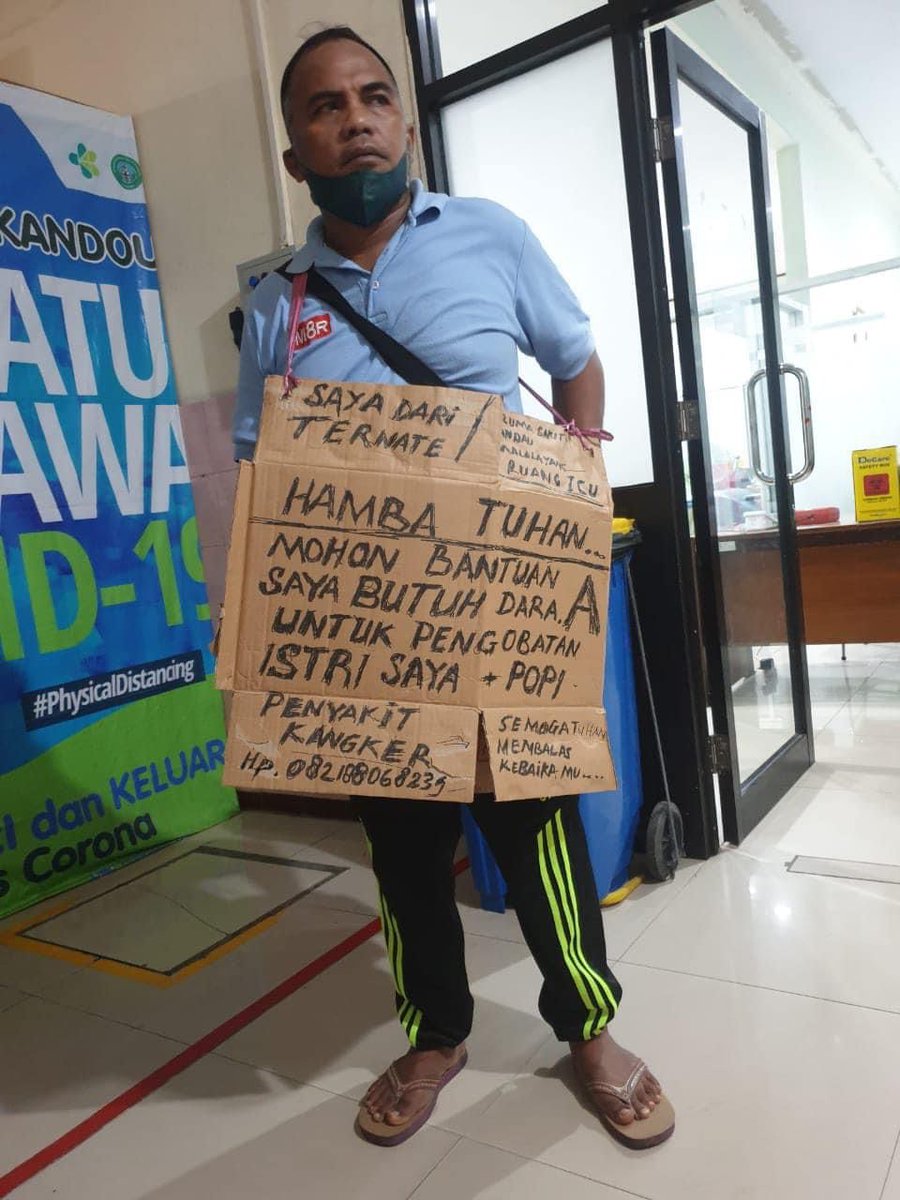 KANDOU
ATU
AWA
ID-19
#PhysicalDistancing
dan KELUAR
Corona
M8R
SAYA DARI
TERNATE /
RUANG ICU
HAMBA TUHAN...
MOHON BANTUAN
SAYA BUTUH DARA. A
UNTUK PENGOBATAN
ISTRI SAYA + POPI
PENYAKIT
KANGKER
Hp. 082188068239
SEMOGA TUHAN
MEMBALAS
KEBAIKA MU....
SAFETY BOX